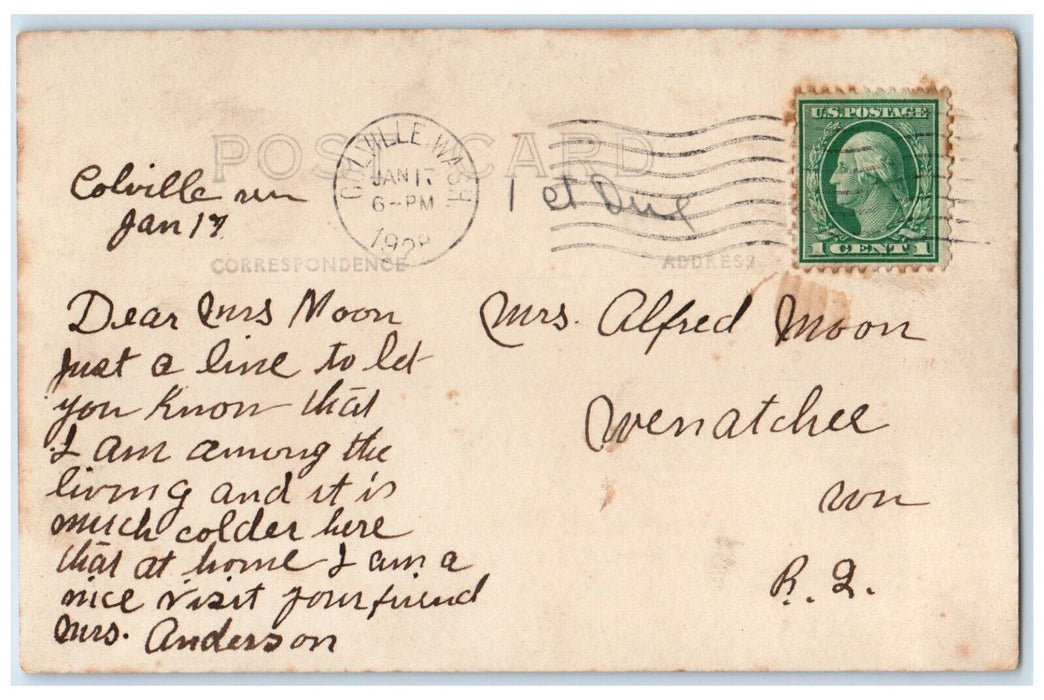 POST CARD
COLVILLE, WASH
JAN 17
6-PM
U.S. POSTAGE
1 CENT 1
1 ct Due
Colville wn
Jan 17
CORRESPONDENCE
ADDRESS
Dear Mrs Moon
Just a line to let
you know that
I am among the
living and it is
much colder here
that at home I am a
nice visit your friend
Mrs. Anderson
Mrs. Alfred Moon
Wenatchee
Wn
R. 2.